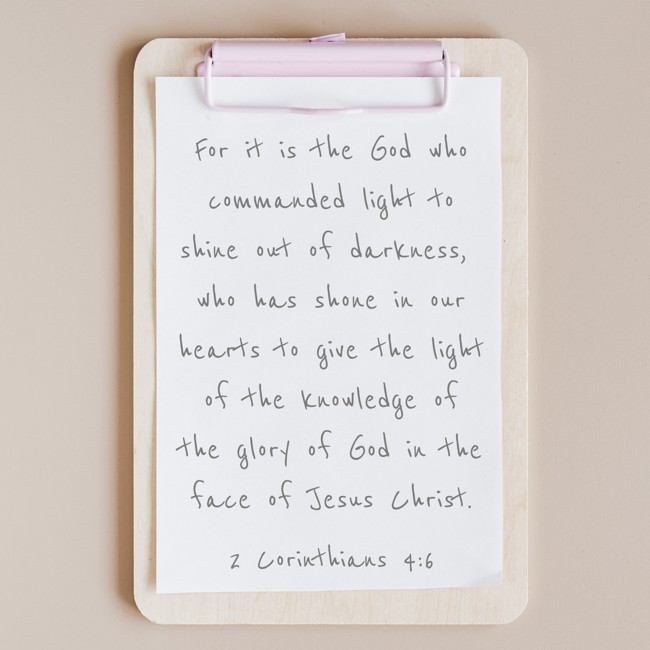 For it is the God who
commanded light to
shine out of darkness,
who has shone in our
hearts to give the light
of the knowledge of
the glory of God in the
face of Jesus Christ.
2 Corinthians 4:6